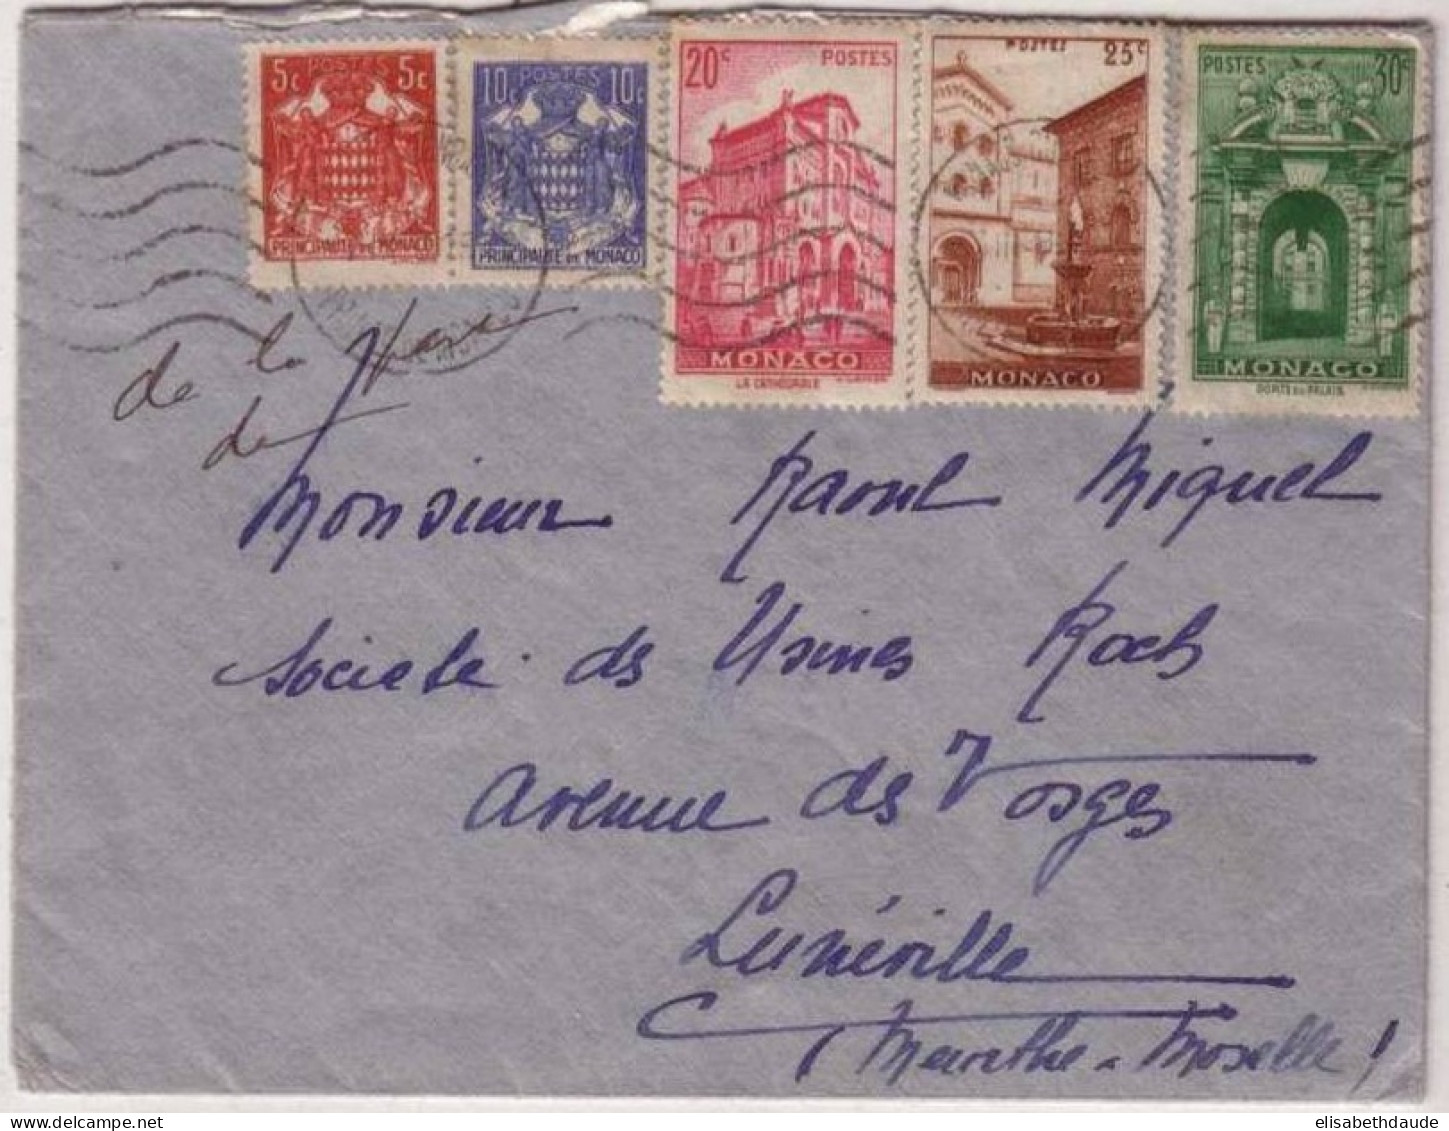 5c POSTES 5c
PRINCIPAUTE DE MONACO
10c POSTES 10c
PRINCIPAUTE DE MONACO
20c POSTES
MONACO
LA CATHEDRALE
POSTES 25c
MONACO
POSTES 30c
MONACO
PORTE DU PALAIS
de la
de
Monsieur Raoul Miquel
Societe des Usines Roch
Avenue des Vosges
Lunéville
(Meurthe & Moselle)
elisabethdaude